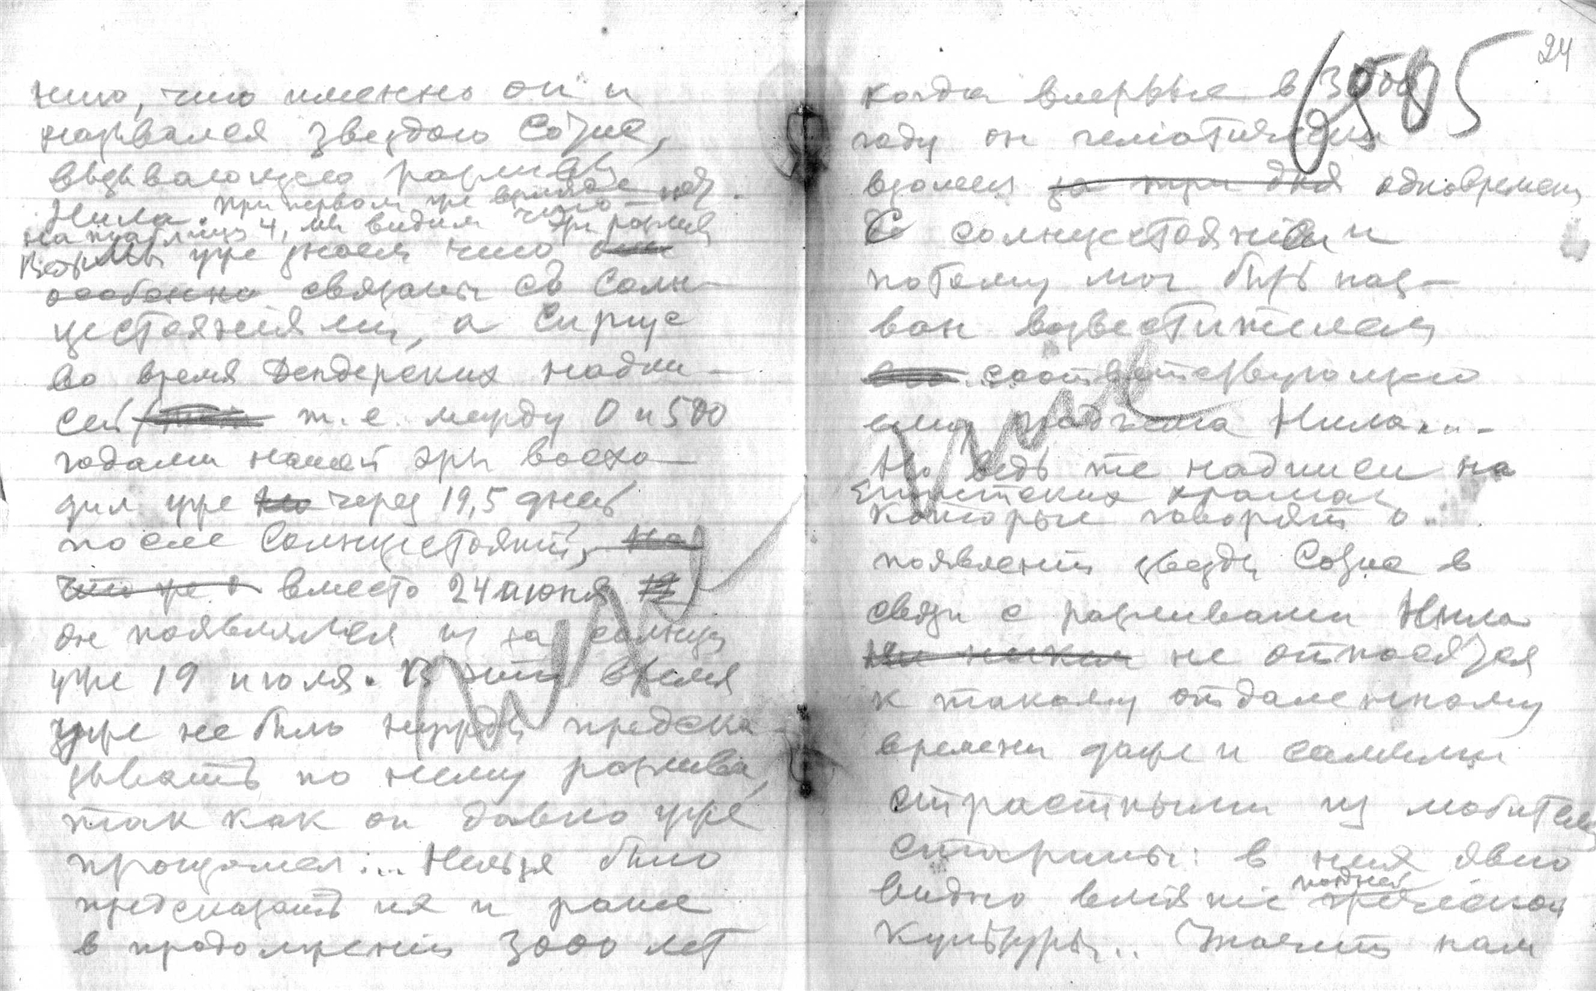 нию, что именно он и
назывался звездою Сотис,
вызывающею разливы
Нила. При первом же взгляде
на таблицу 4, мы видим что эти разливы
Ведь мы уже знаем что они
особенно связаны съ Солн-
цестоянiями, а Сириус
во время Дендерских надпи-
сей т. е. между 0 и 500
годами нашей эры восхо-
дил уже через 19,5 дней
после Солнцестоянiй, на
что же и вместо 24 июня
он появлялся из за солнца
уже 19 июля. В это время
уже не было нужды предска-
зывать по нему разлива,
так как он давно уже
прошел... Нельзя было
предсказать их и ранее
в продолженiи 3000 лет
24
6585
когда впервые в 3000
году он гелiатически
взошел за три дня одновременно
С солнцестоянiем и
потому мог быть наз-
ван возвестителем
соответствующего
ему подъема Нила...
Но ведь те надписи на
Египетских храмах
которые говорят о
появленiи звезды Сотис в
связи с разливами Нила
не относятся
к такому отдаленному
времени даже и самыми
страстными из любителей
старины: в них явно
видно влiянiе поздней греческой
культуры... Значит нам